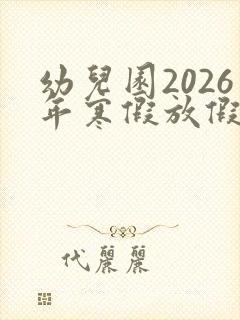 幼兒園2026
年寒假放假
代麗麗